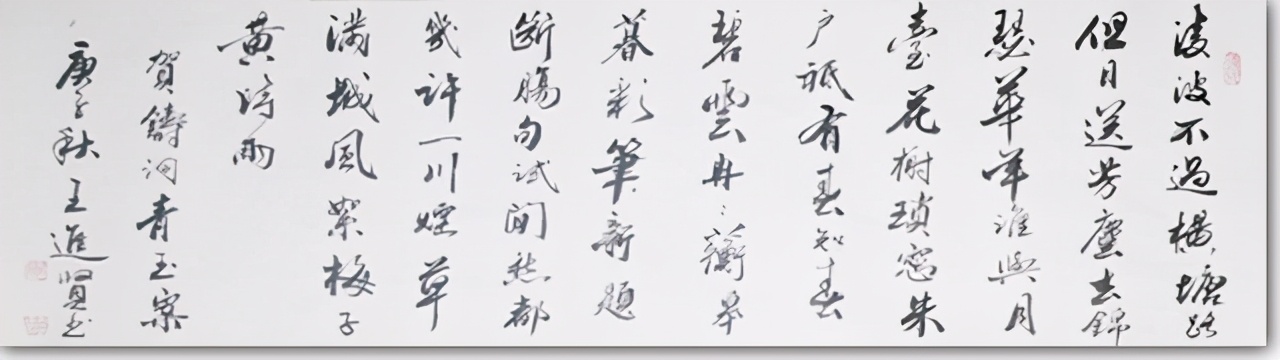 淩波不過横塘路
但目送芳塵去錦
瑟華年誰與月
臺花榭瑣窗朱
户祇有春知春
碧雲冉冉蘅皋
暮彩筆新題
斷腸句試問愁都
幾許一川煙草
滿城風絮梅子
黄時雨
賀鑄詞青玉案
庚子秋王進賢书